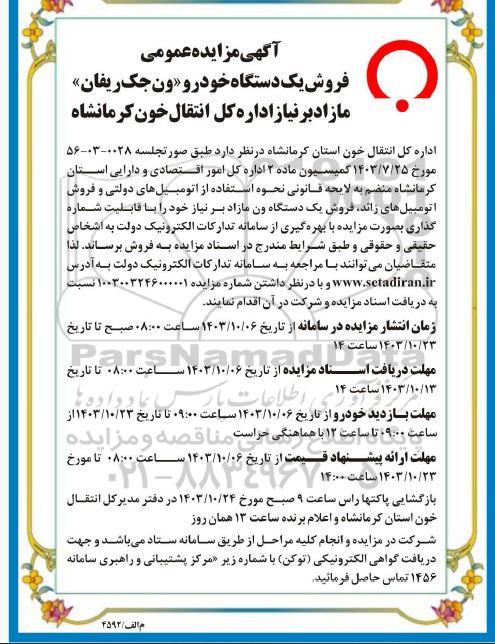 آگهی مزایده عمومی
فروش یک دستگاه خودرو «ون جک ریفان»
مازاد بر نیاز اداره کل انتقال خون کرمانشاه
اداره کل انتقال خون استان کرمانشاه درنظر دارد طبق صورتجلسه ۰۰۲۸-۰۳-۵۶
مورخ ۱۴۰۳/۷/۲۵ کمیسیون ماده ۲ اداره کل امور اقتصادی و دارایی استان
کرمانشاه منضم به لایحه قانونی نحوه استفاده از اتومبیل‌های دولتی و فروش
اتومبیل‌های زائد، فروش یک دستگاه ون مازاد بر نیاز خود را با قابلیت شماره
گذاری بصورت مزایده با بهره‌گیری از سامانه تدارکات الکترونیک دولت به اشخاص
حقیقی و حقوقی و طبق شرایط مندرج در اسناد مزایده به فروش برساند. لذا
متقاضیان می‌توانند با مراجعه به سامانه تدارکات الکترونیک دولت به آدرس
www.setadiran.ir و با درنظر داشتن شماره مزایده ۱۰۰۳۰۰۳۲۴۶۰۰۰۰۰۱ نسبت
به دریافت اسناد مزایده و شرکت در آن اقدام نمایند.
زمان انتشار مزایده در سامانه از تاریخ ۱۴۰۳/۱۰/۰۶ ساعت ۰۸:۰۰ صبح تا تاریخ
۱۴۰۳/۱۰/۲۳ ساعت ۱۴
مهلت دریافت اسناد مزایده از تاریخ ۱۴۰۳/۱۰/۰۶ ساعت ۰۸:۰۰ تا تاریخ
۱۴۰۳/۱۰/۱۳ ساعت ۱۴
مهلت بازدید خودرو از تاریخ ۱۴۰۳/۱۰/۰۶ ساعت ۰۹:۰۰ تا تاریخ ۱۴۰۳/۱۰/۲۳ از
ساعت ۰۹:۰۰ تا ساعت ۱۲ با هماهنگی حراست
مهلت ارائه پیشنهاد قیمت از تاریخ ۱۴۰۳/۱۰/۰۶ ساعت ۰۸:۰۰ تا مورخ
۱۴۰۳/۱۰/۲۳ ساعت ۱۴:۰۰
بازگشایی پاکتها راس ساعت ۹ صبح مورخ ۱۴۰۳/۱۰/۲۴ در دفتر مدیرکل انتقال
خون استان کرمانشاه و اعلام برنده ساعت ۱۳ همان روز
شرکت در مزایده و انجام کلیه مراحل از طریق سامانه ستاد می‌باشد و جهت
دریافت گواهی الکترونیکی (توکن) با شماره زیر «مرکز پشتیبانی و راهبری سامانه
۱۴۵۶ تماس حاصل فرمائید.
م‌الف/۴۵۹۲
ParsNamadData
۰۲۱-۸۸۳۴۹۶۷۰